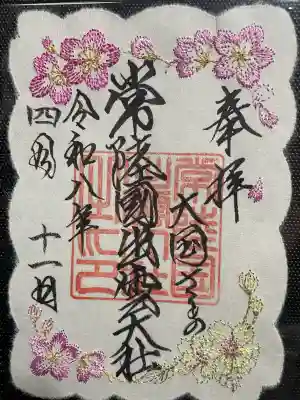 奉拝
大国さまの
常陸國出雲大社
令和八年
四月 十一日